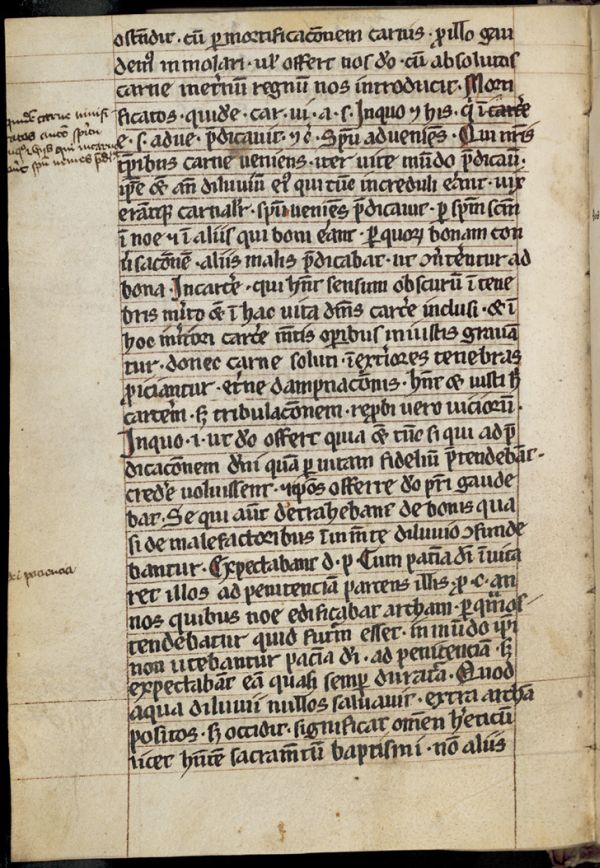 ostendit · cū p mortificacōnem carnis · p illo gau
dem⁹ inmolari · ul' offert nos dō · cū absolutos
carne in et'nū regnū nos introducit · Morti
ficatos · quidē · car · ui · a · s · In quo ⁊ his · q̄ ī carc̄e
e · s · adue · p̄dicauit · ⁊ c̄ · Spū adueniēs · Qui nr̄is
tp̄ribus carne ueniens · iter uite mūdo p̄dicau̅ ·
ip̄e ⁊ añ diluuiū eī⁹ qui tūc increduli erāt · uix
erāntq̧ carnalit̄ · spū ueniens p̄dicauit · p sp̄m scm̄
ī noe ⁊ ī aliis qui boni erāt · p quor̄ bonam con
ũsacōnē · aliis malis p̄dicabat · ut ↄũterent̄ ad
bona · In carc̄e · qui hn̄t sensum obscurū ī tene
bris m̄ito ⁊ ī hac uita dm̄s carc̄e inclusi · ⁊ ī
hoc int̄iori carc̄e m̄tis op̄ribus iniustis grauā
tur · donec carne soluti · ī ext̄iores tenebras
p̄iciantur · et̄ne dampnacōnis · hn̄t ⁊ iusti h̄
carcerē · s̄ tribulacōnem · rep̄bi uero uiciorū ·
In quo · i · ut dō offert quia ⁊ tūc si qui ad p̄
dicacōnem dn̄i quā p uitam fideliū p̄tendebāt ·
credē uoluissent · ip̄os offerre dō pr̄i gaude
bat · Se qui aūt detrahebant de bonis qua
si de malefactoribus imminēte diluuio ↄfunde
bantur · Expectabant d · p · Cum pac̄ia dī īuita
ret illos ad penitenciā parcens illis p · c · an
nos quibus noe edificabat archam · p qm̄ os
tendebatur quid futr̄m esset · in mūdo ip̄i
non utebantur pac̄ia dī · ad penitenciā · s̄
expectabāt eā quasi semp̄ duratā · Quod
aqua diluuii nullos saluauit · extra archā
positos · s̄ occidit · significat omēm heticū
licet hn̄te sacram̄tū baptismi · nō aliis
dī paciencia